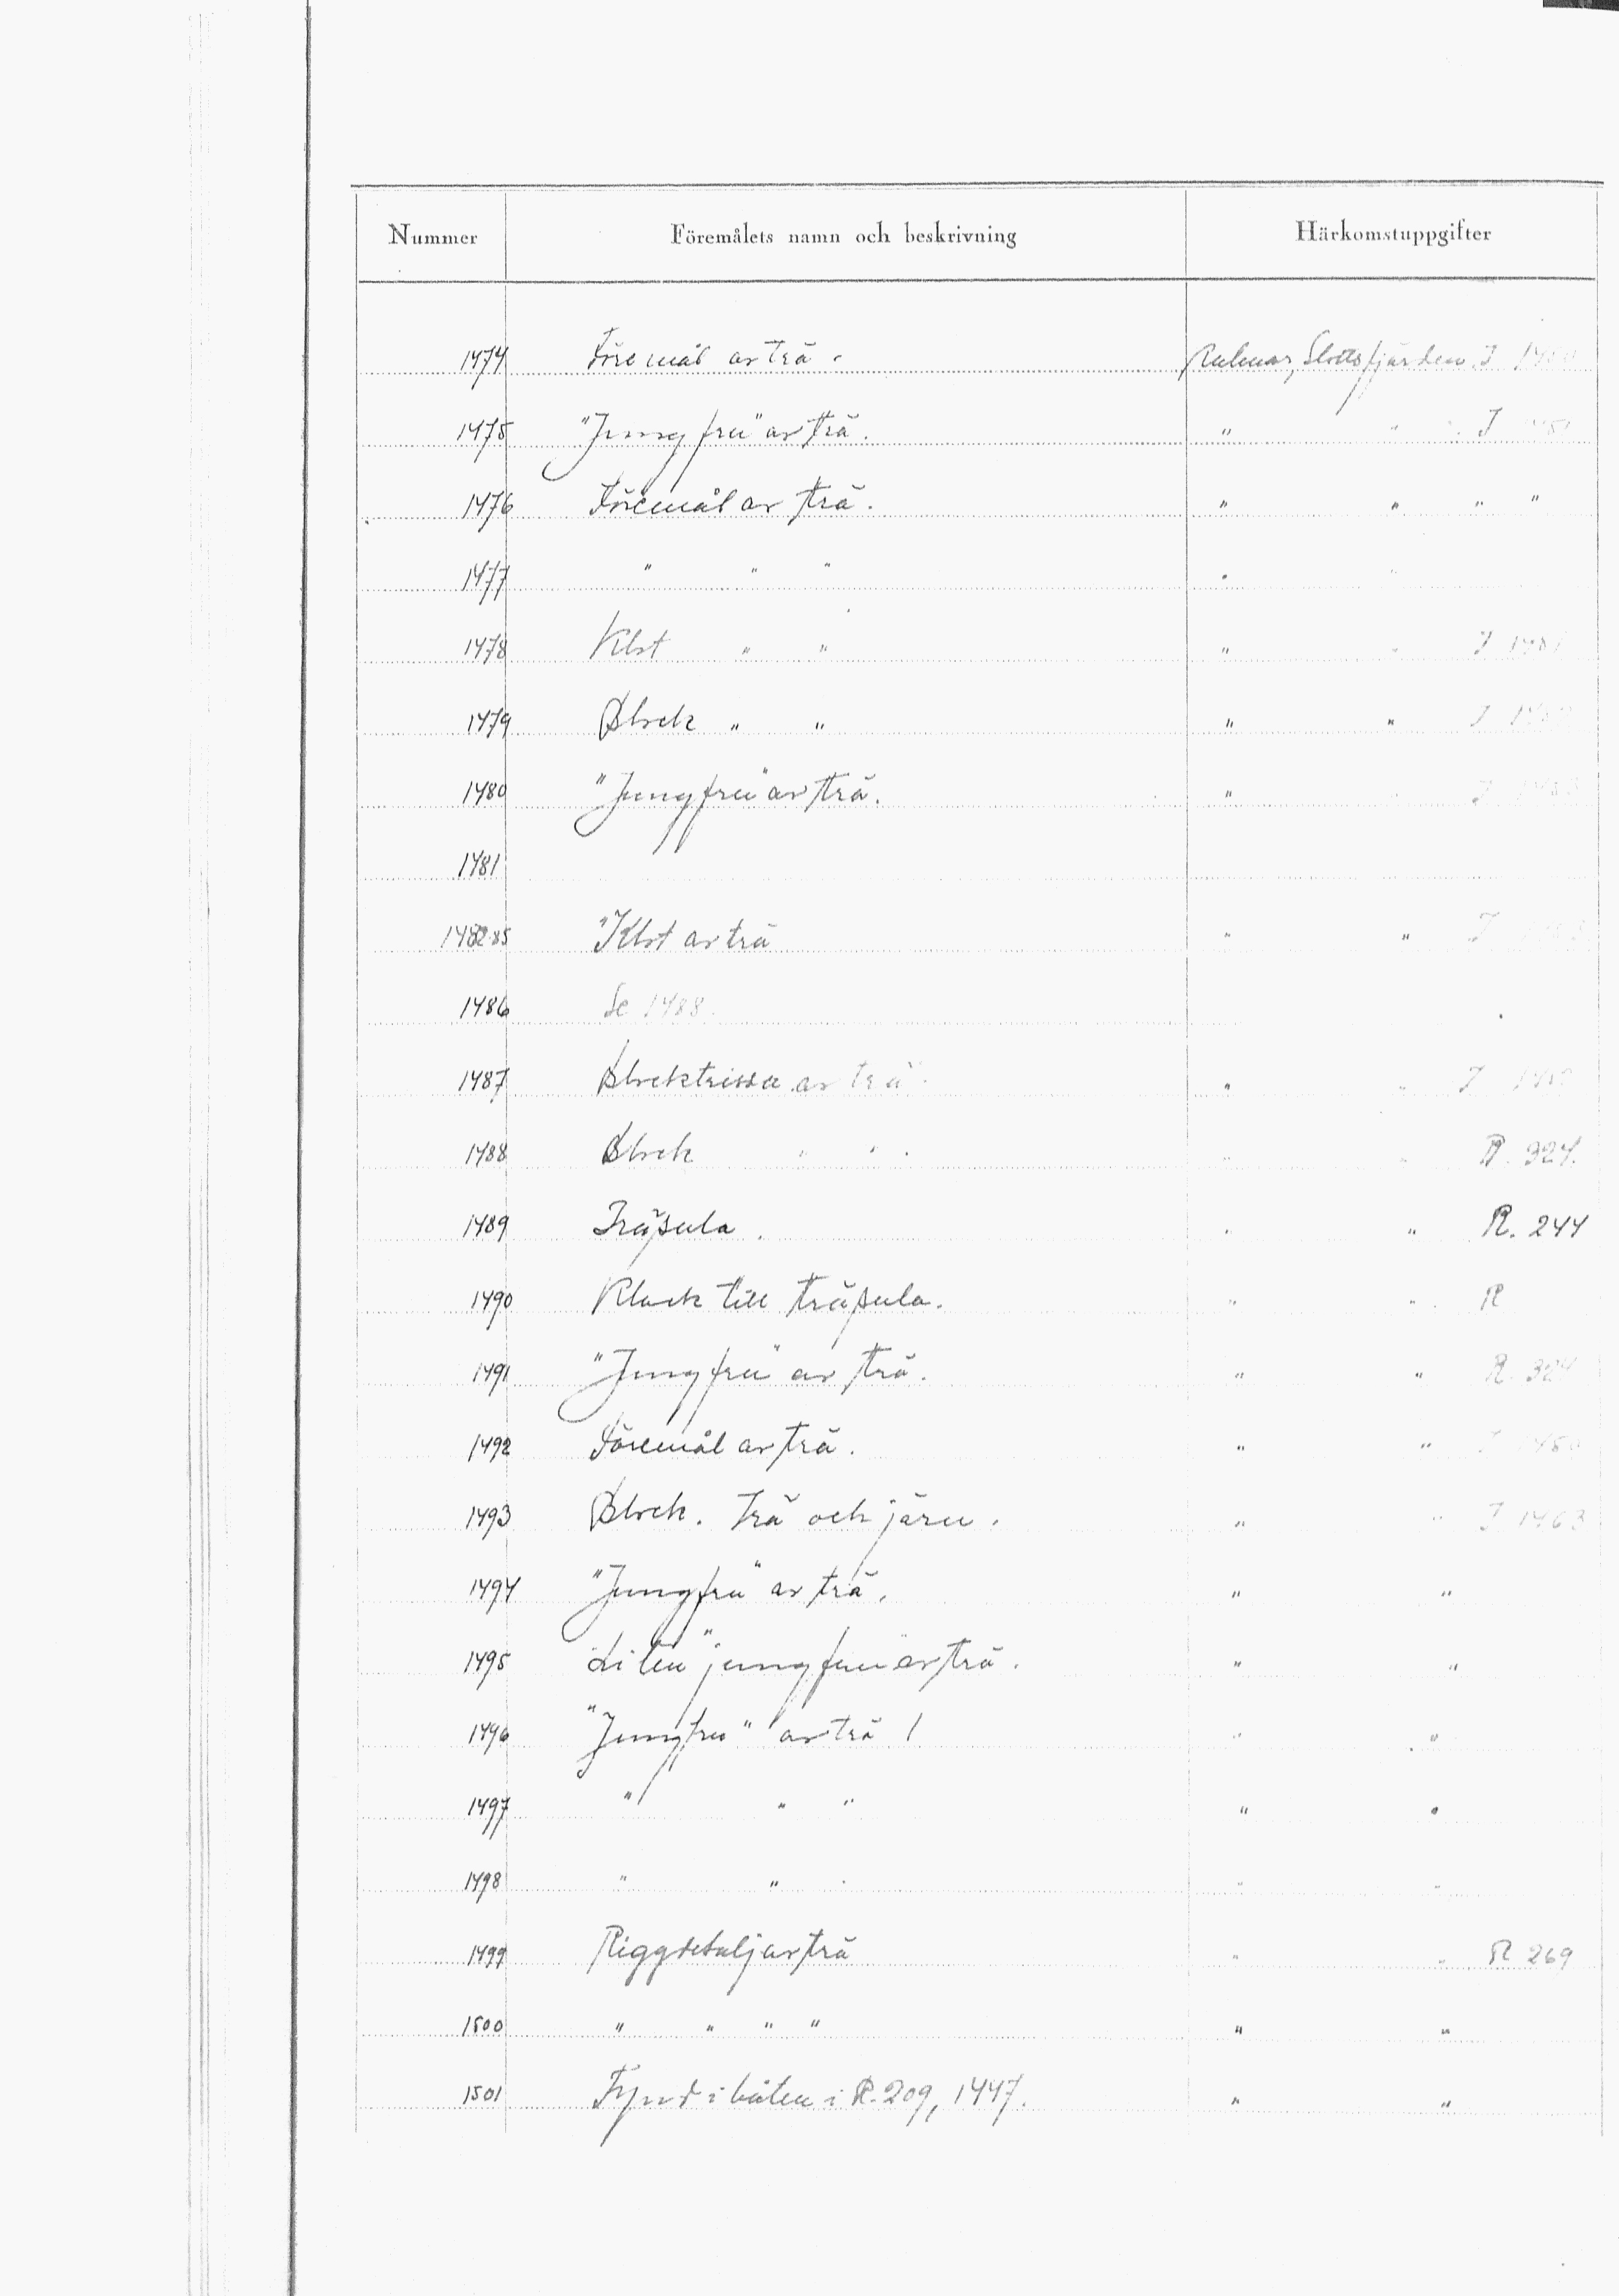 Nummer Föremålets namn och beskrivning Härkomstuppgifter
1474 Föremål av trä. Kalmar, Slottsfjärden. I
1475 "Jungfru" av trä. " " I
1476 Föremål av trä. " " " "
1477 " " " " "
1478 Klot " " " " I
1479 Block " " " " I
1480 "Jungfru" av trä. " " I
1481
1482-85 "Klot av trä " " I
1486 Se 1488.
1487 Blocktrissa av trä. " " I
1488 Block " " " " R. 324.
1489 Träsula. " " R. 244
1490 Klack till träsula. " " R
1491 "Jungfru" av trä. " " R. 324
1492 Föremål av trä. " " I
1493 Block. Trä och järn. " " I 1463
1494 "Jungfru" av trä. " "
1495 Liten "jungfru" av trä. " "
1496 "Jungfru" av trä " "
1497 " " " " "
1498 " " " " "
1499 Riggdetalj av trä " " R 269
1500 " " " " " "
1501 Fynd i båten i R. 209, 1447. " "